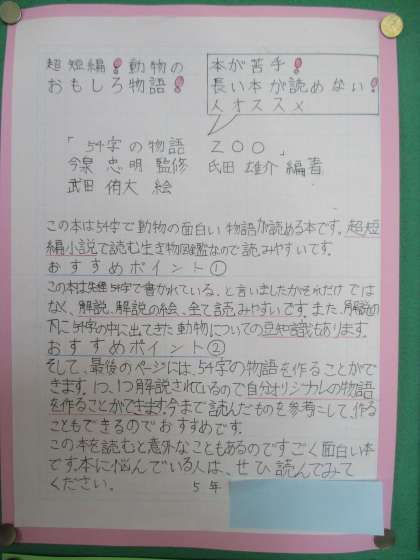 超短編！動物の
おもしろ物語！
本が苦手！
長い本が読めない！
人オススメ
「54字の物語 ZOO」
今泉 忠明 監修 氏田 雄介 編著
武田 侑大 絵
この本は54字で動物の面白い物語が読める本です。超短
編小説で読む生き物図鑑なので読みやすいです。
おすすめポイント①
この本は先程54字で書かれている、と言いましたがそれだけでは
なく、解説、解説の絵、全て読みやすいです。また、解説の
下に54字の中に出てきた動物についての豆知識もあります。
おすすめポイント②
そして、最後のページには、54字の物語を作ることがで
きます。1つ、1つ解説されているので自分オリジナルの物語
を作ることができます。今まで読んだものを参考にして、作る
こともできるのでおすすめです。
この本を読むと意外なこともあるのですごく面白い本
です。本に悩んでいる人は、ぜひ読んでみて
ください。
5年